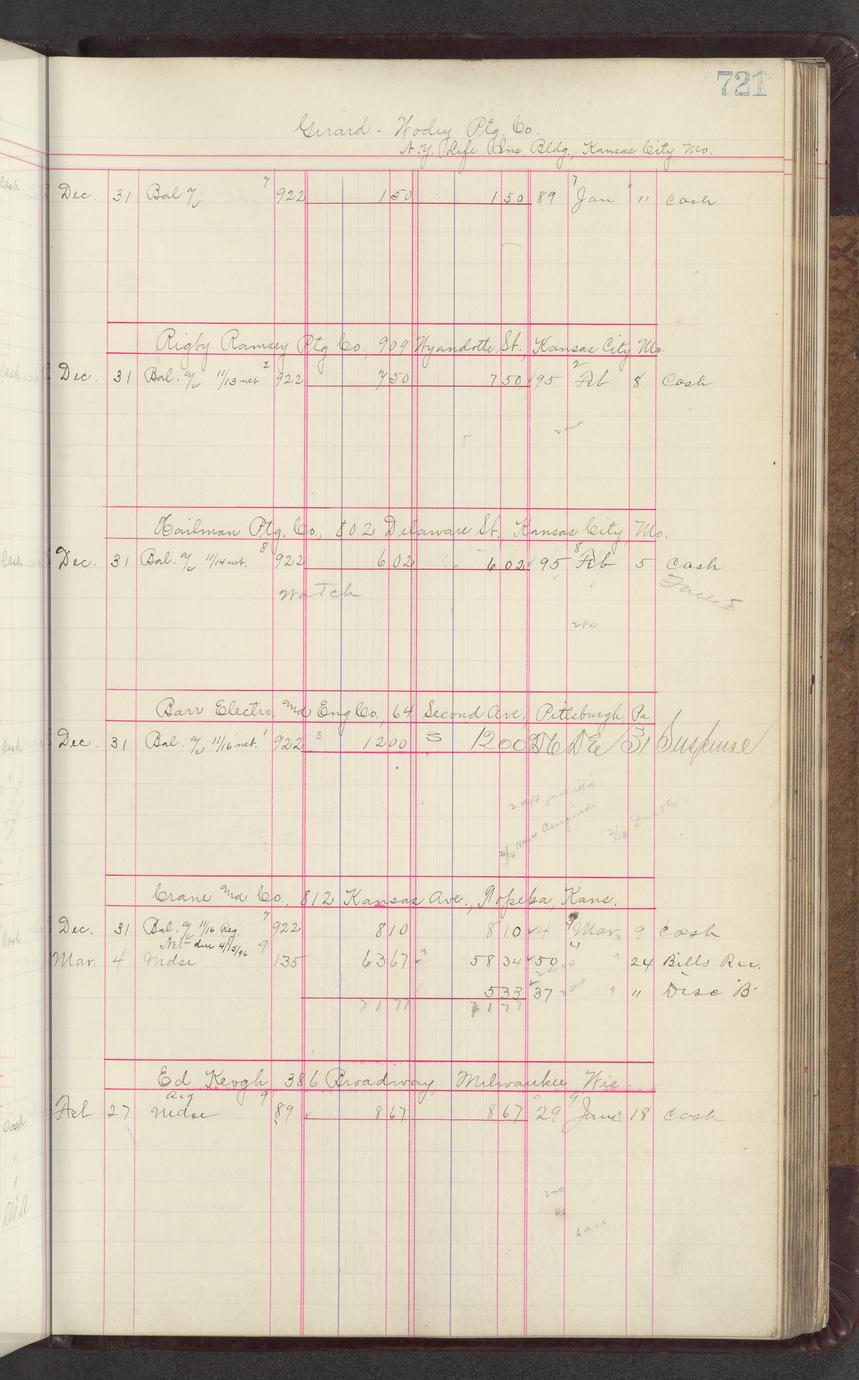 721
Girard - Wodey Ptg. Co.
N.Y. Life Ins. Bldg., Kansas City, Mo.
Dec. 31 Bal a/c 7 922 1 50 1 50 89 7 Jan 11 Cash
Rigby Ramsey Ptg Co., 909 Wyandotte St., Kansas City Mo.
Dec. 31 Bal. a/c 11/13 net 2 922 7 50 7 50 95 2 Feb 8 Cash
Hailman Ptg. Co., 802 Delaware St., Kansas City, Mo.
Dec. 31 Bal. a/c 11/14 net. 8 922 6 02 6 02 95 8 Feb 5 Cash
Watch
Barr Electro. and Eng Co., 64 Second Ave., Pittsburgh, Pa
Dec. 31 Bal. a/c 11/16 net. 1 922 3 12 00 3 12 00 DE 31 Suspense
Crane and Co., 812 Kansas Ave., Topeka, Kans.
Dec. 31 Bal. a/c 11/16 Reg. 7 922 8 10 8 10 4 9 Mar 9 Cash
Net - due 4/15/96
Mar. 4 Mdse 9 135 63 67 58 34 50 " 24 Bills Rec.
5 33 37 " " Disc "B"
71 77 71 77
Ed Keogh 386 Broadway, Milwaukee, Wis
Reg
Feb 27 Mdse 9 89 8 67 8 67 29 9 June 18 Cash